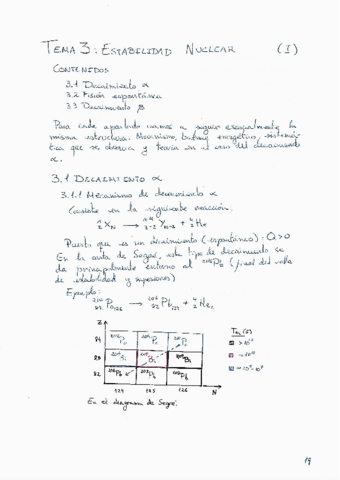 TEMA 3: ESTABILIDAD NUCLEAR (I)
CONTENIDOS
3.1 Decaimiento α
3.2 Fisión espontánea
3.3 Decaimiento β
Para cada apartado vamos a seguir esencialmente la
misma estructura: Mecanismo, balance energético, sistemát-
ica que se observa y teoría en el caso del decaimiento
α.
3.1 DECAIMIENTO α
3.1.1 Mecanismo de decaimiento α
Consiste en la siguiente reacción:
A Z X N → A-4 Z-2 Y N-2 + 4 2 He
Puesto que es un decaimiento (espontáneo): Q>0
En la carta de Segrè, este tipo de decaimiento se
da principalmente entorno al 208Pb (final del valle
de estabilidad y superiores)
Ejemplo:
210 84 Po 126 → 206 82 Pb 124 + 4 2 He 2
Z
84
83
82
124 125 126 N
En el diagrama de Segrè.
19